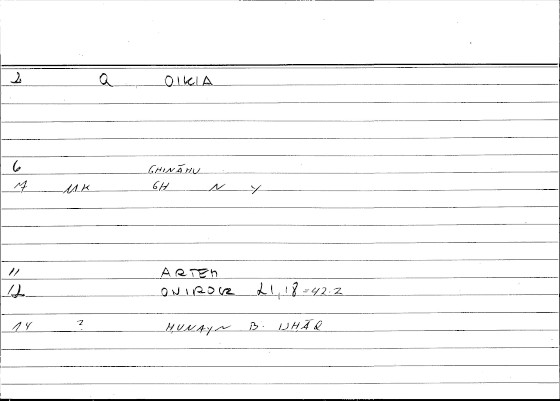 2 Q OIKIA
6 GHINĀHU
7 MK GH N Y
11 ARTEM
12 ONIROCR 21,18=42.2
14 ? HUNAYN B. ISHĀQ